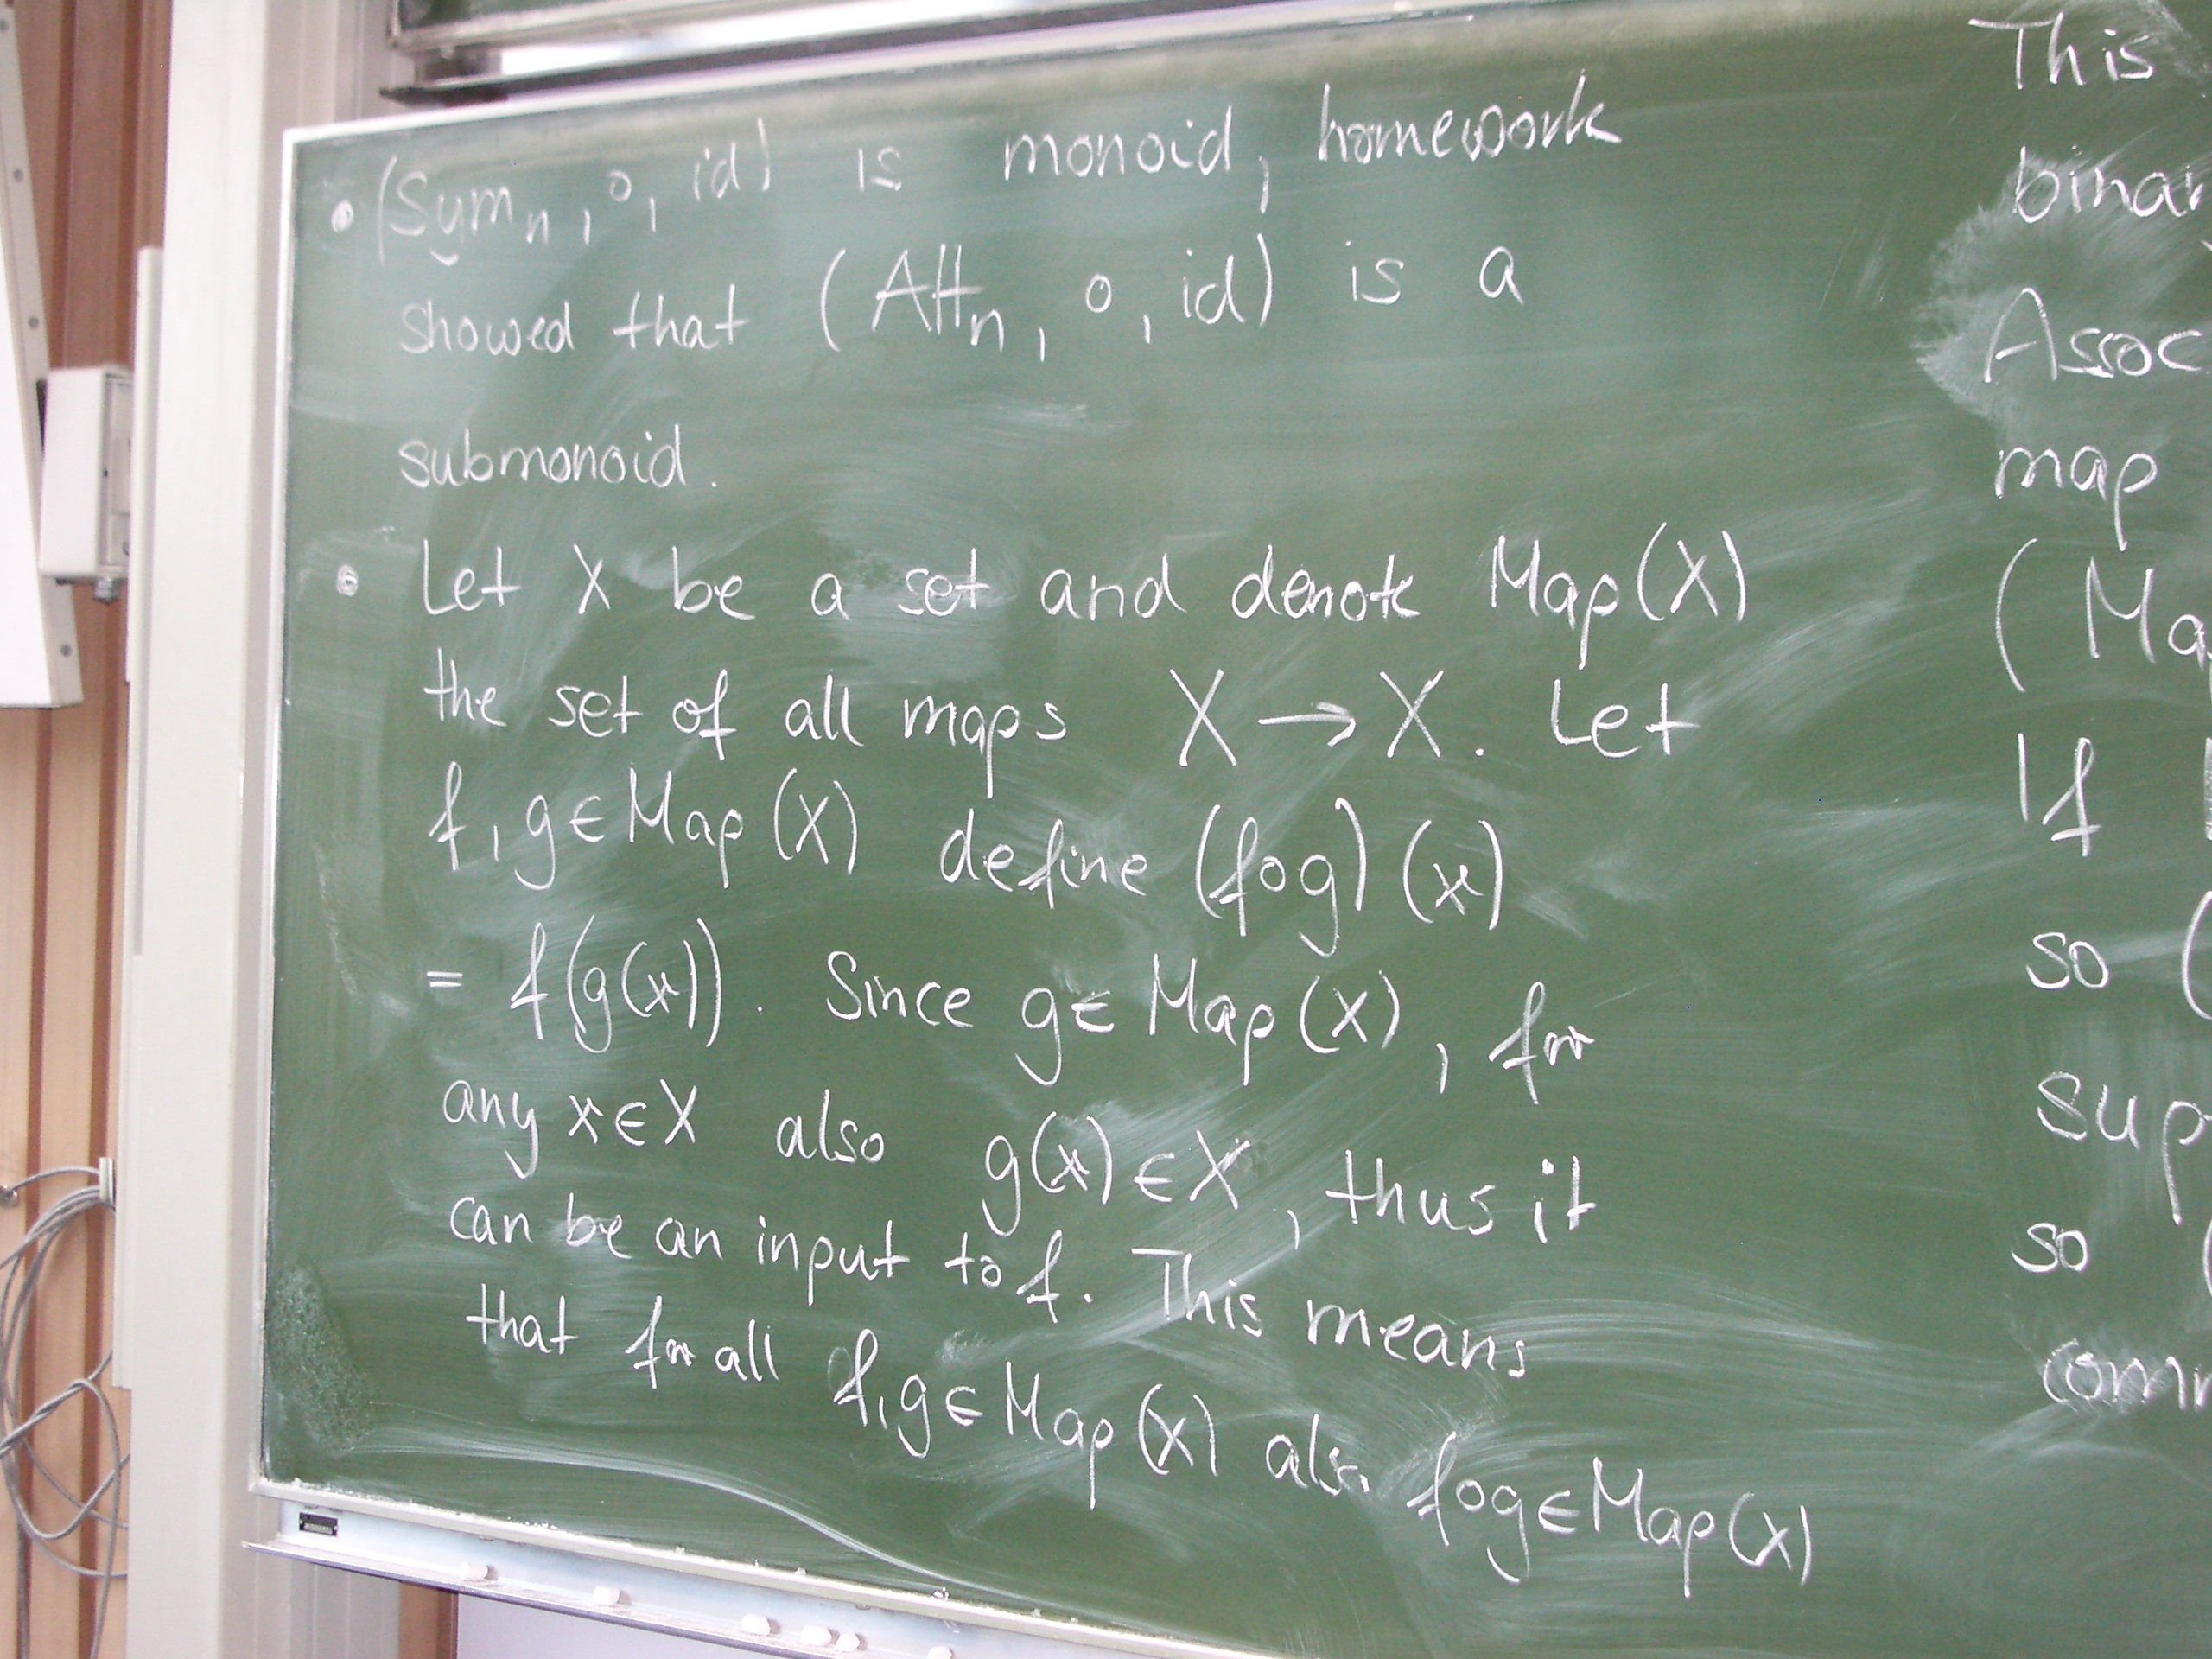 • (Symₙ, ∘, id) is monoid, homework
showed that (Altₙ, ∘, id) is a
submonoid.
• Let X be a set and denote Map(X)
the set of all maps X → X. Let
f, g ∈ Map(X) define (f∘g)(x)
= f(g(x)). Since g ∈ Map(X), for
any x ∈ X also g(x) ∈ X, thus it
can be an input to f. This means
that for all f, g ∈ Map(X) also f∘g ∈ Map(X)
This
binar
Assoc
map
(Ma
If
so (
sup
so (
comm